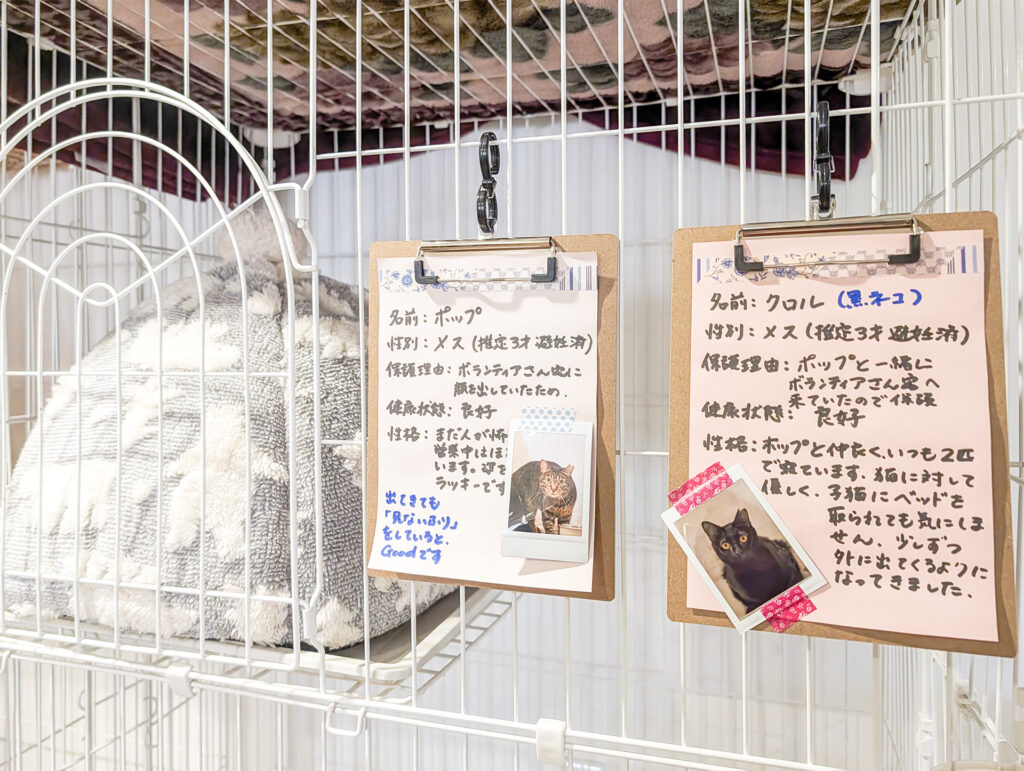 名前：ポップ
性別：メス（推定3才避妊済）
保護理由：ボランティアさん宅に
顔を出していたため．
健康状態：良好
性格：まだ人が怖
営業中はほ
います。姿を
ラッキーです
出てきても
「見ないふり」
をしていると、
Goodです
名前：クロル（黒ネコ）
性別：メス（推定3才避妊済）
保護理由：ポップと一緒に
ボランティアさん宅へ
来ていたので保護
健康状態：良好
性格：ポップと仲良く、いつも2匹
で寝ています。猫に対して
優しく、子猫にベッドを
取られても気にしま
せん、少しずつ
外に出てくるように
なってきました．